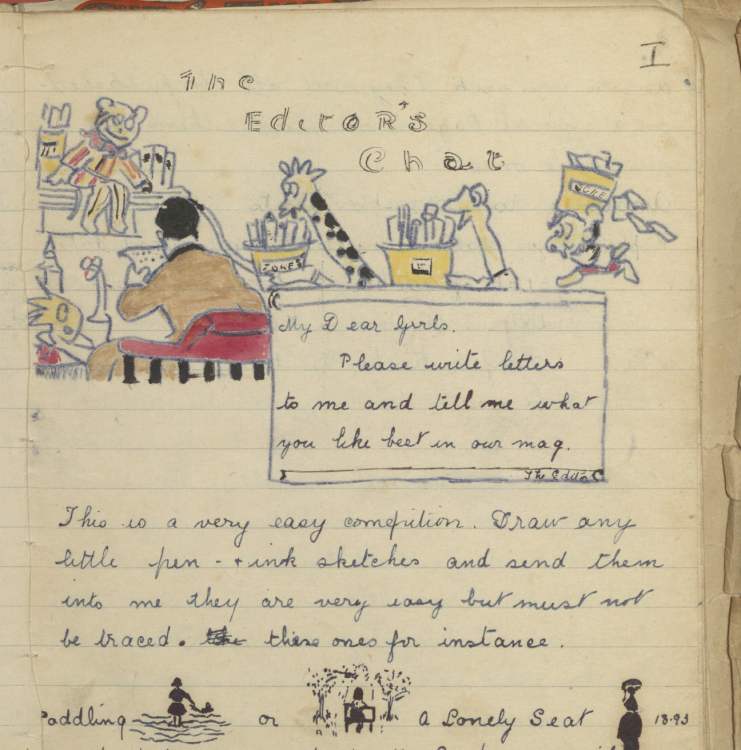 I
The
Editor's
Chat
JOKES
My Dear Girls.
Please write letters
to me and tell me what
you like best in our mag.
This is a very easy compitition. Draw any
little pen - + ink sketches and send them
into me they are very easy but must not
be traced. these ones for instance.
Paddling or a Lonely Seat 18.93